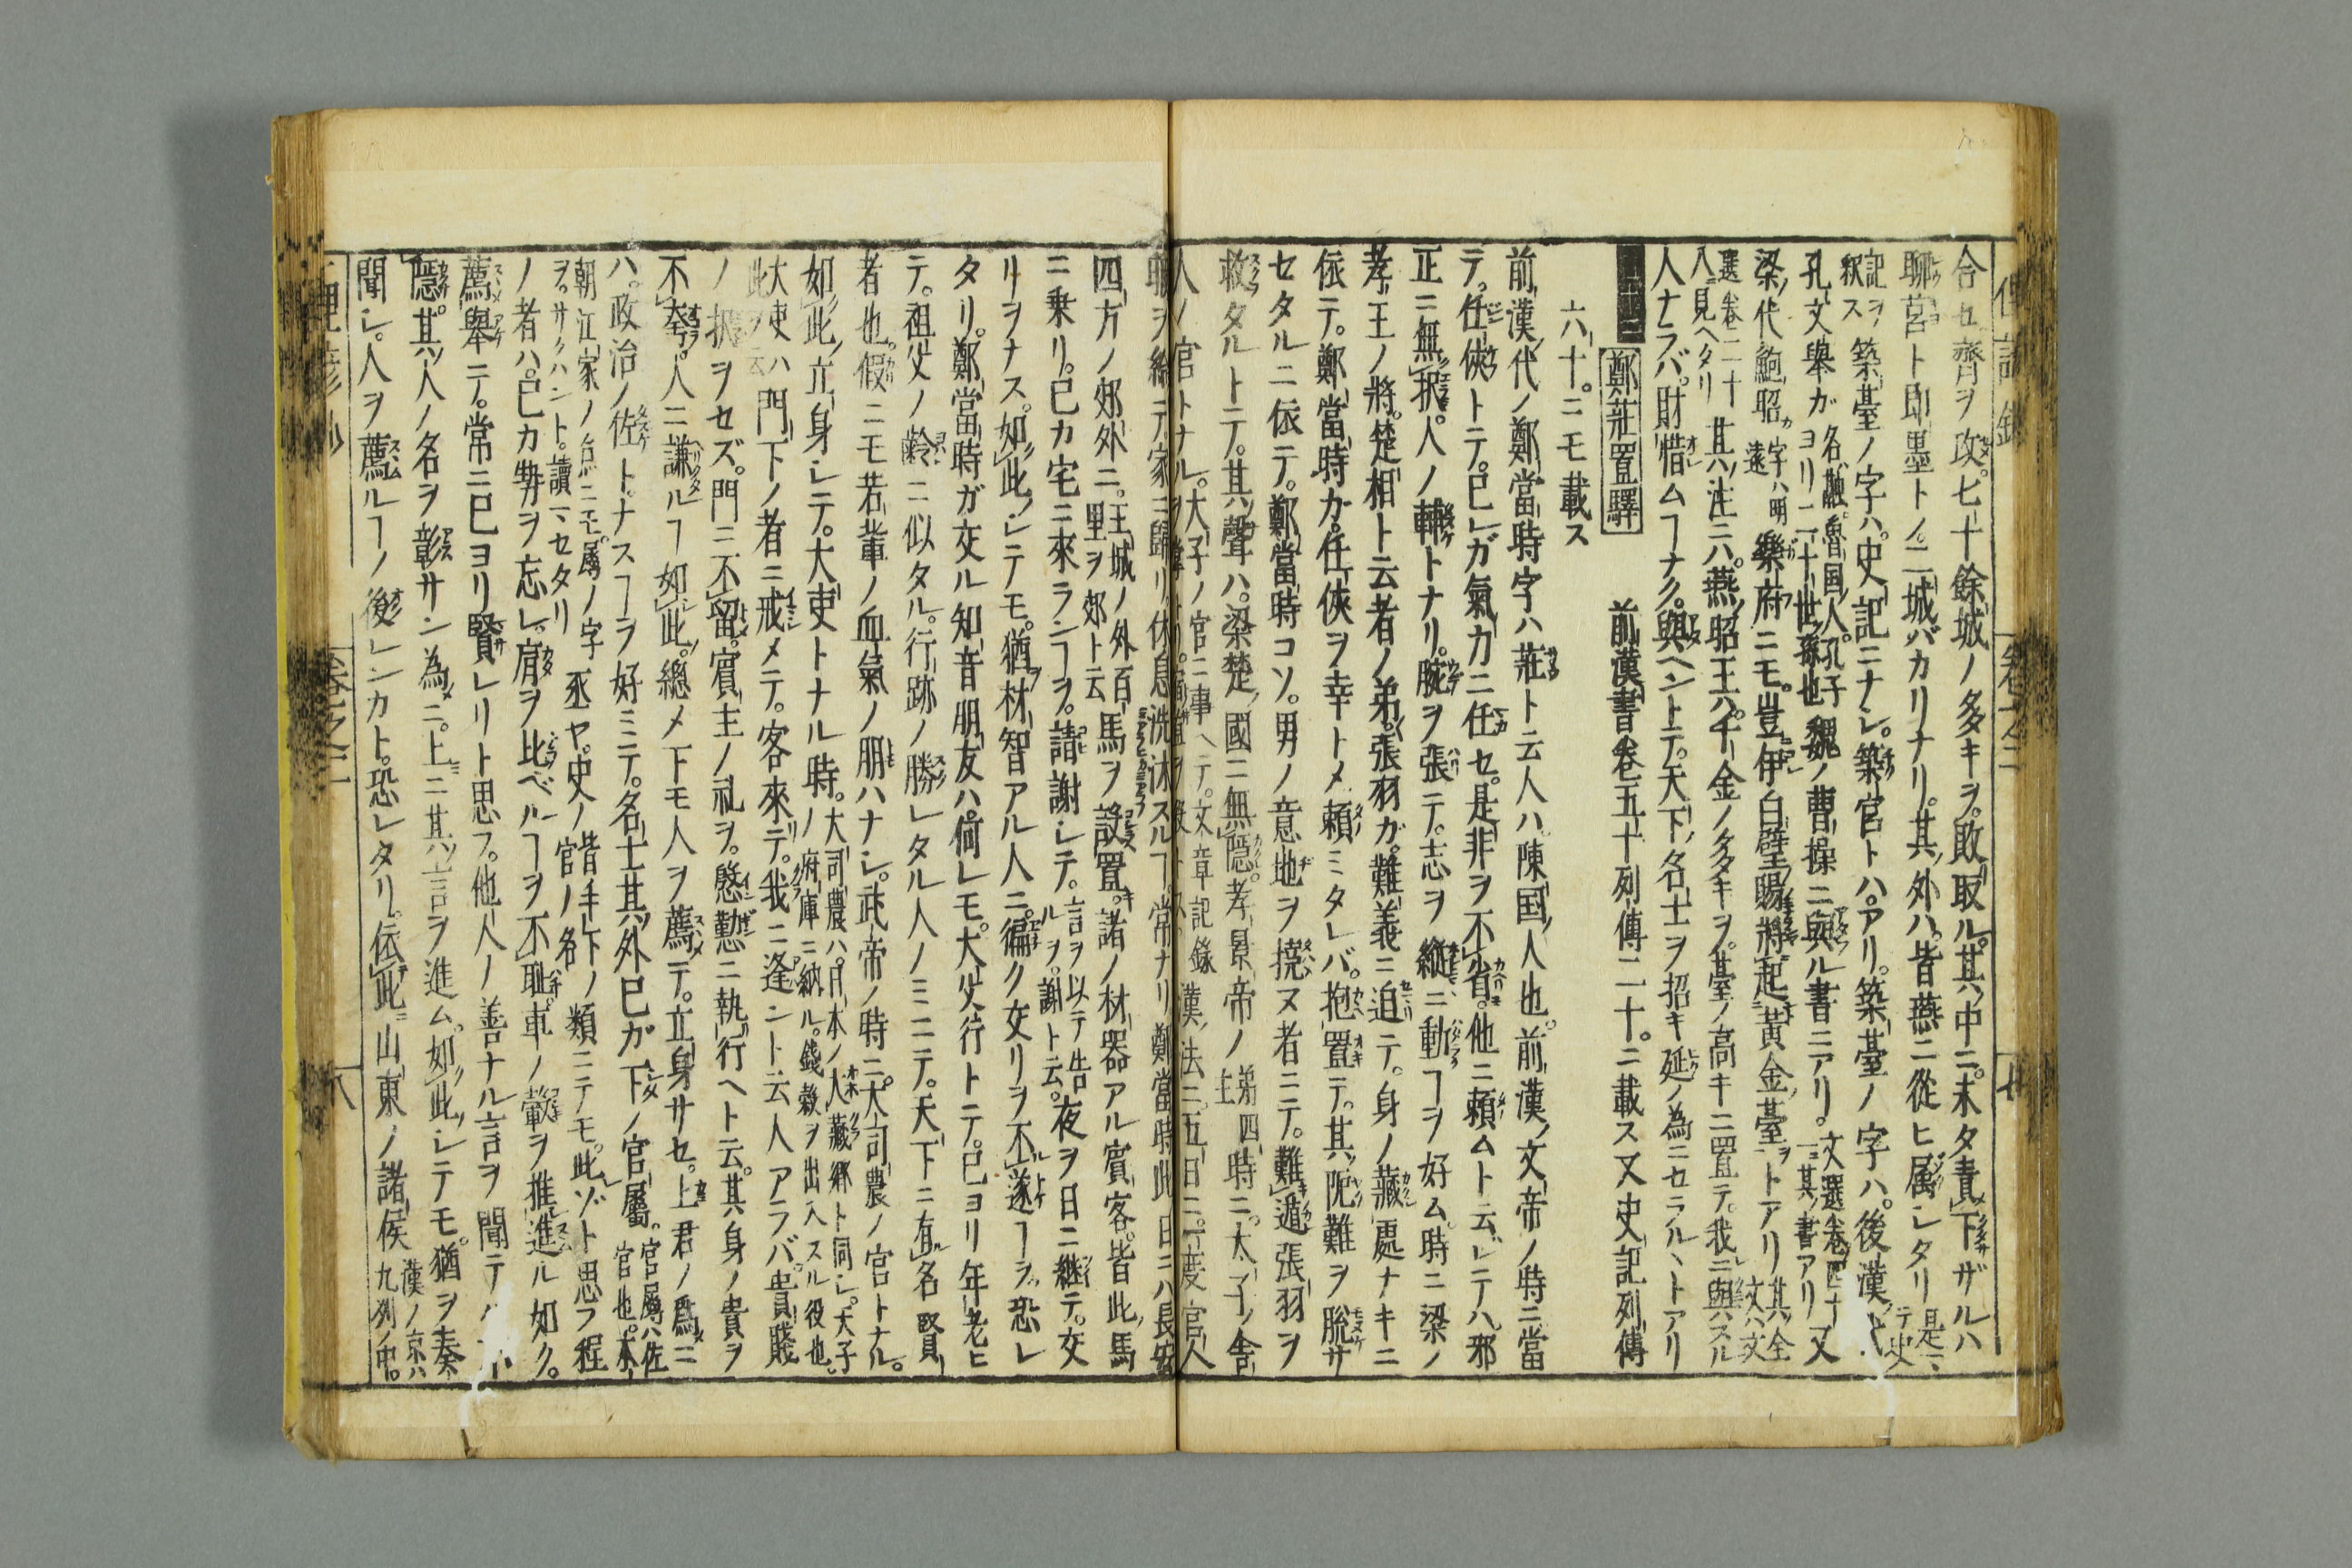 合セ齊ヲ攻。七十餘城ノ多キヲ。敗取ル。其中ニ。未タ責下ザルハ
聊宮ト即墨トノ二城バカリナリ。其外ハ。皆燕ニ從ヒ属シタリ
記ヲ釈ス築臺ノ字ハ。史記ニナシ。築官トハ。アリ。築臺ノ字ハ。後漢
孔文舉ガ名ハ融魯国ノ人。孔子ヨリ二十世ノ孫也魏ノ曹操ニ與ル書ニアリ。文選卷四十一ニ其書アリ又
梁ノ代鮑昭カ字ハ明遠樂府ニモ。豈伊白璧賜將起黃金臺ヲトアリ其全文ハ文
選卷二十八ニ見ヘタリ其注ニハ。燕ノ昭王ハ。千金ノ多キヲ。臺ノ高キニ置テ。我ニ與スル
人ナラバ。財惜ムヿナク。與ヘントテ。天下ノ名士ヲ招キ延ク為ニセラルヽトアリ
鄭莊置驛 前漢書卷五十列傳二十。ニ載ス又史記列傳
六十。ニモ載ス
前漢ノ代ノ鄭當時字ハ莊ト云人ハ陳国ノ人也。前漢ノ文帝ノ時ニ當
テ。任俠トテ。己レガ氣力ニ任セ。是非ヲ不省。他ニ頼ムト云レテハ。邪
正ニ無択人ノ輔トナリ。腕ヲ張テ。志ヲ縦ニ動フヿヲ好ム。時ニ梁ノ
孝王ノ將。楚相ト云者ノ弟。張羽ガ。難義ニ迫テ。身ノ藏處ナキニ
依テ。鄭當時カ。任俠ヲ幸トメ頼ミタレバ。抱置テ。其阨難ヲ脱サ
セタルニ依テ。鄭當時コソ。男ノ意地ヲ撓ヌ者ニテ。難遁張羽ヲ
救タルトテ。其聲ハ。梁楚ノ國ニ無隱。孝景帝ノ第四主時ニ。太子ノ舎
人ノ官トナル。
職ヲ給テ家ニ歸リ。休息洗沐スルヿ。常ナリ鄭當時此日ニハ長安
四方ノ郊外ニ。王城ノ外百里ヲ郊ト云馬ヲ設置。諸ノ材器アル賓客。皆此馬
ニ乗リ。已カ宅ニ來ランヿヲ。請謝シテ。言ヲ以テ告ルヲ。謝ト云。夜ヲ日ニ継テ。交
リヲナス。如此シテモ。猶材智アル人ニ。徧ク交リヲ不遂ヿヲ。恐レ
タリ。鄭當時ガ交ル知音朋友ハ。何レモ。大父行トテ。已ヨリ年老ヒ
テ。祖父ノ齡ニ似タル。行跡ノ勝レタル人ノミニテ。天下ニ有名賢
者也。假ニモ若輩ノ血氣ノ朋ハナシ。武帝ノ時ニ。大司農ノ官トナル。
如此立身シテ。大吏トナル時。大司農ハ。日本ノ大藏卿ト同シ。天子ノ府庫ニ納ル。錢穀ヲ出入スル役也
大吏ハ此ヲ云門下ノ者ニ戒メテ。客來テ。我ニ逢ント云人アラバ。貴賤
ノ択ヲセズ。門ニ不留。賓主ノ礼ヲ。慇懃ニ執行ヘト云。其身ノ貴ヲ
不奢。人ニ謙ルヿ如此。總メ下モ人ヲ薦テ。立身サセ。上君ノ為ニ
ハ。政治ノ佐トナスヿヲ好ミニテ。名士其外已ガ下ノ官屬。官屬ハ佐官也。本
朝江家ノ点ニモ。屬ノ字ヲ。サクハント。讀マセタリ丞ヤ。史ノ皆手下ノ官ノ名類ニテモ。此ゾト思フ程
ノ者ハ。已カ勢ヲ忘レ。肩ヲ比ベルヿヲ不恥。車ノ轂ヲ推進ル如ク。
薦舉テ。常ニ已ヨリ賢レリト思フ。他人ノ善ナル言ヲ聞テハ
隱。其人ノ名ヲ彰サン為ニ。上ニ其言ヲ進ム。如此シテモ。猶ヲ奏
聞シ。人ヲ薦ルヿノ後レンカト。恐レタリ。依此山東ノ諸侯漢ノ京ハ九列ノ中。